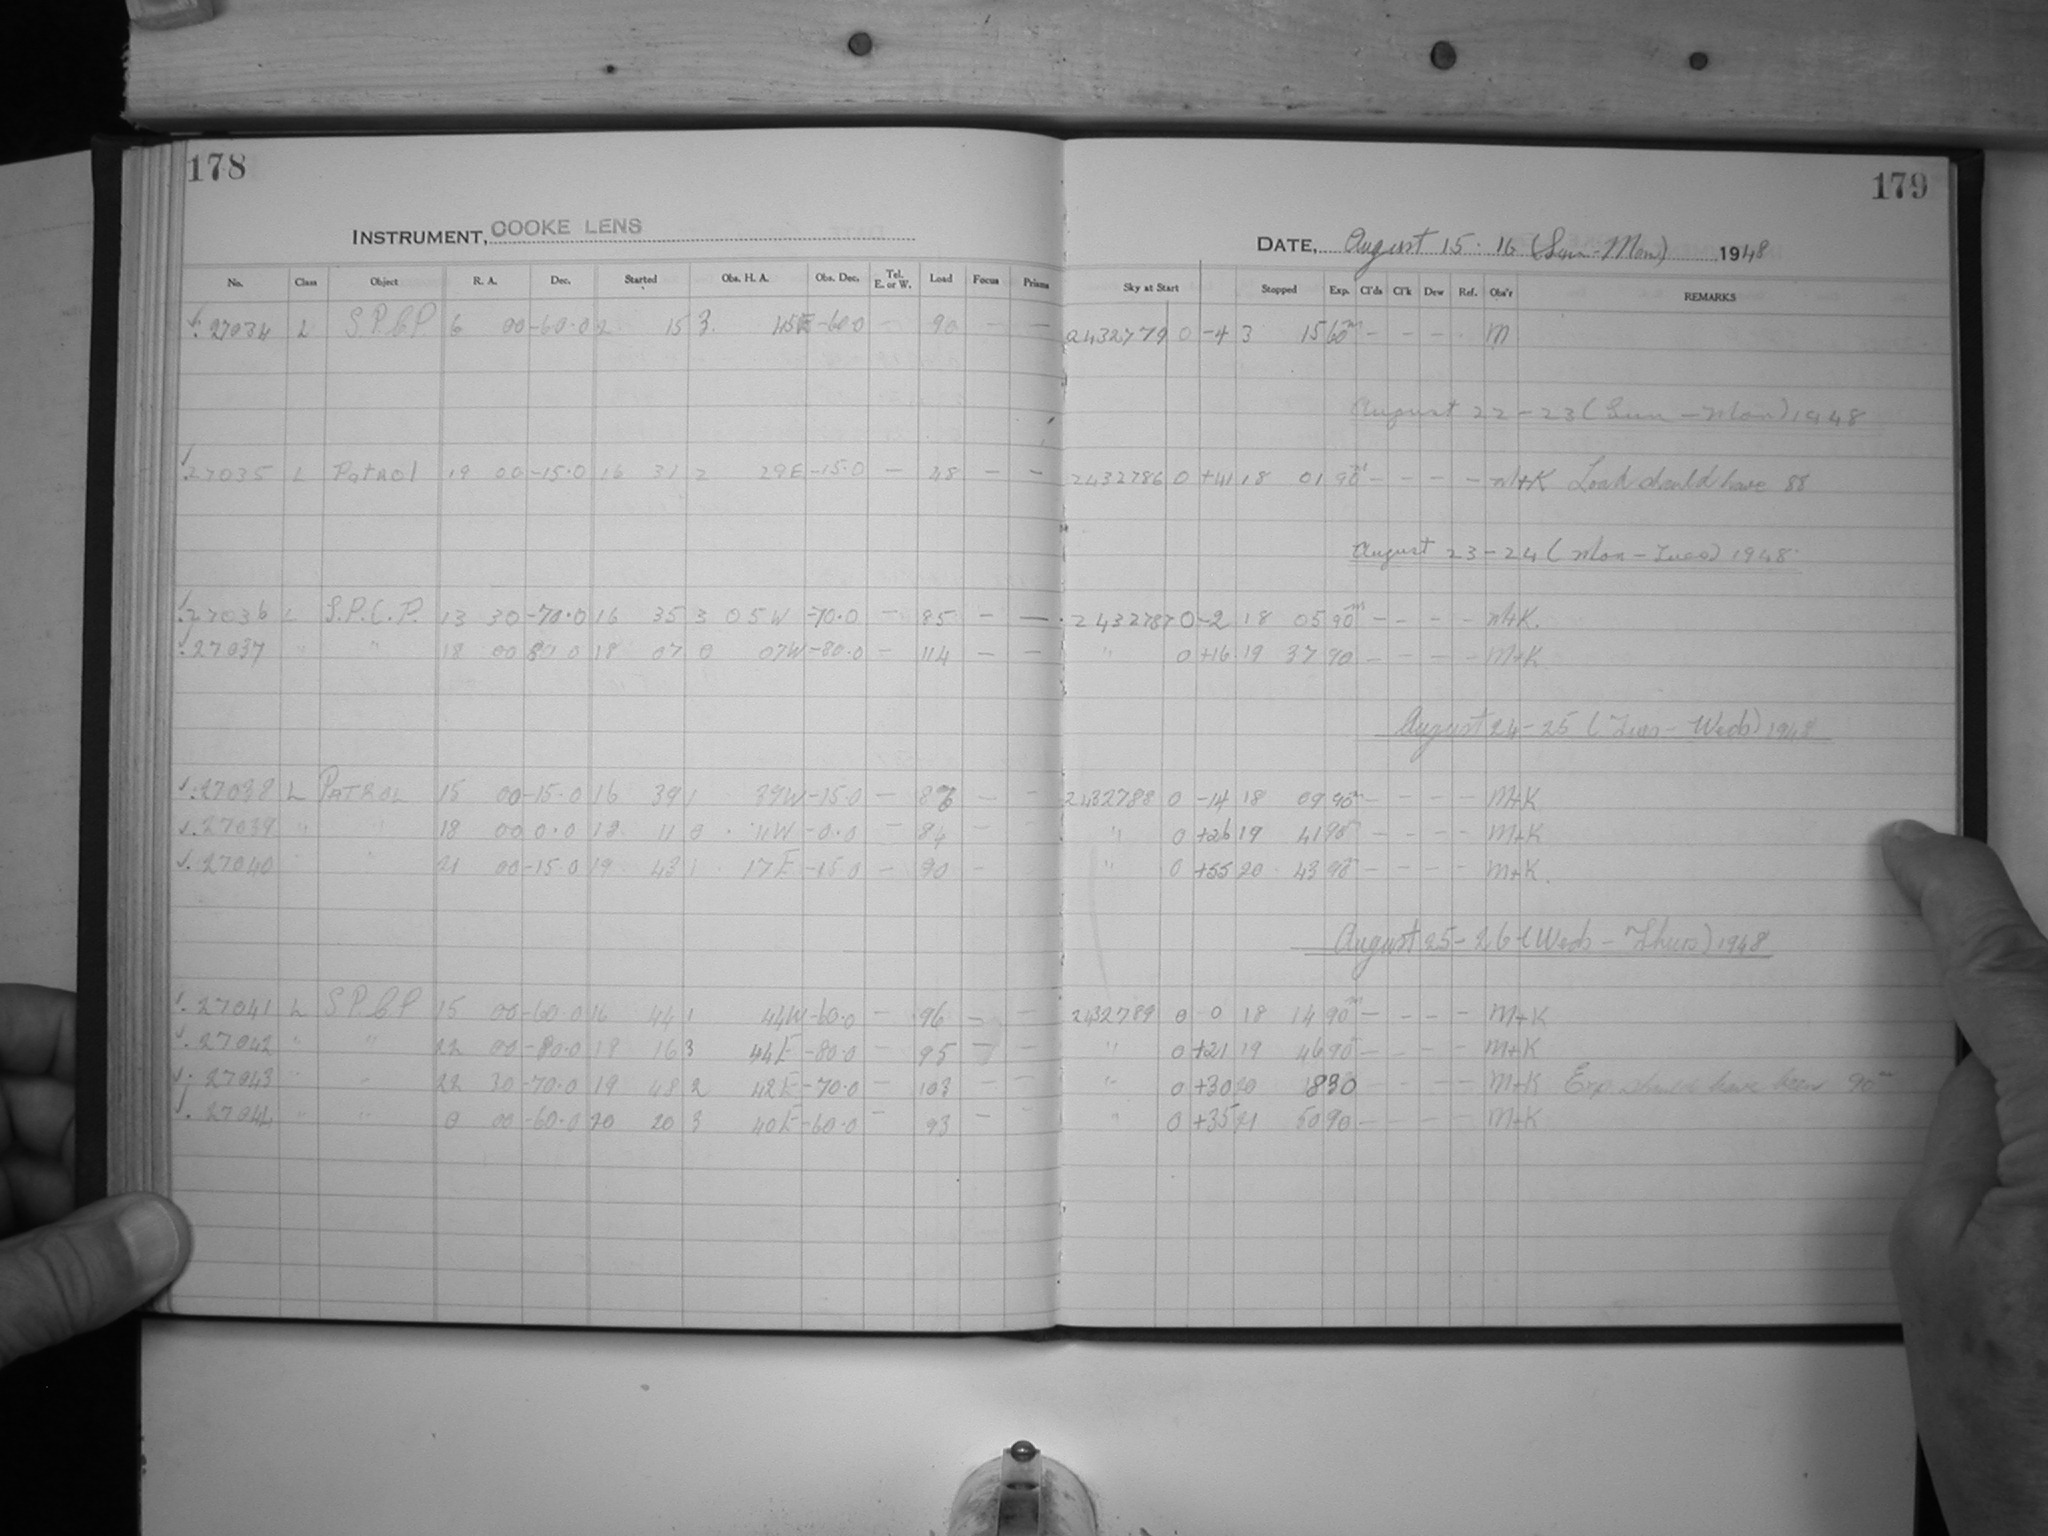 178
INSTRUMENT, COOKE LENS
No. Class Object R. A. Dec. Started Obs. H. A. Obs. Dec. Tel. E. or W. Load Focus Prisms
27034 L S.P.C.P 6 00 -60.0 2 15 3 45E -60.0 — 90 — —
27035 L Patrol 19 00 -15.0 16 31 2 29E -15.0 — 48 — —
27036 L S.P.C.P. 13 30 -70.0 16 35 3 05W -70.0 — 85 — —
27037 " " 18 00 80.0 18 07 0 07W -80.0 — 114 — —
27038 L PATROL 15 00 -15.0 16 39 1 39W -15.0 — — —
27039 " " 18 00 0.0 18 11 0 11W -0.0 — 84 — —
27040 " " 21 00 -15.0 19 43 1 17E -15.0 — 90 —
27041 L S.P.C.P 15 00 -60.0 16 44 1 44W -60.0 — 96 — —
27042 " " 22 00 -80.0 18 16 3 44E -80.0 — 95 — —
27043 " " 22 30 -70.0 19 48 2 42E -70.0 — 103 — —
27044 " " 0 00 -60.0 20 20 3 40E -60.0 — 93 — —
179
DATE, August 15-16 (Sun-Mon) 1948
Sky at Start Stopped Exp. Cl'ds Cl'k Dew Ref. Obs'r REMARKS
2432779 0 -4 3 15 60m — — — M
August 22-23 (Sun-Mon) 1948
2432786 0 +41 18 01 90m — — — — M+K Load should have 88
August 23-24 (Mon-Tues) 1948
2432787 0 -2 18 05 90m — — — — M+K.
" 0 +16 19 37 90 — — — — M+K
August 24-25 (Tues-Weds) 1948
2432788 0 -14 18 09 90m — — — — M+K
" 0 +26 19 41 90 — — — — M+K
" 0 +55 20 43 90 — — — — M+K.
August 25-26 (Weds-Thurs) 1948
2432789 0 0 18 14 90m — — — — M+K
" 0 +21 19 46 90 — — — — M+K
" 0 +30 20 18 30 — — M+K Exp. should have been 90m
" 0 +35 21 50 90 — — — — M+K